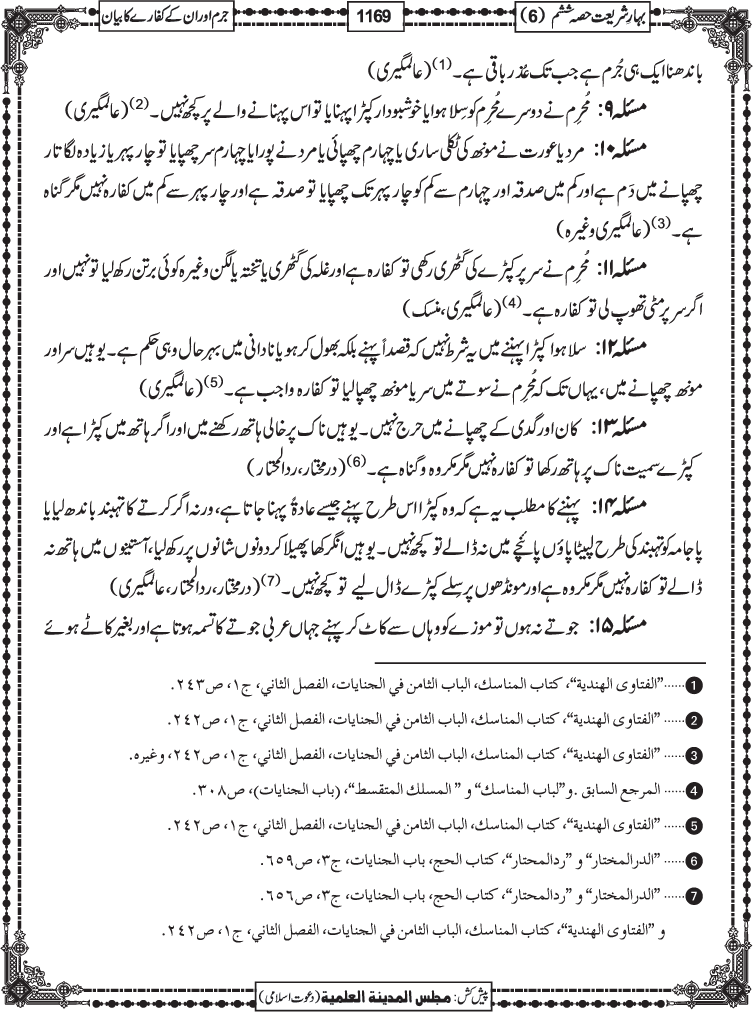 بہارِ شریعت حصہ ششم (6)
1169
جرم اور ان کے کفارے کا بیان
باندھنا ایک ہی جُرم ہے جب تک عُذر باقی ہے۔(1) (عالمگیری)
مسئلہ ۹: مُحرِم نے دوسرے مُحرِم کو سِلا ہوا یا خوشبودار کپڑا پہنایا تو اس پہنانے والے پر کچھ نہیں۔(2) (عالمگیری)
مسئلہ ۱۰: مرد یا عورت نے مونھ کی ٹکلی ساری یا چہارم چھپائی یا مرد نے پورا یا چہارم سر چھپایا تو چار پہر یا زیادہ لگاتار
چھپانے میں دَم ہے اور کم میں صدقہ اور چہارم سے کم کو چار پہر تک چھپایا تو صدقہ ہے اور چار پہر سے کم میں کفارہ نہیں مگر گناہ
ہے۔(3) (عالمگیری وغیرہ)
مسئلہ ۱۱: مُحرِم نے سر پر کپڑے کی گٹھری رکھی تو کفارہ ہے اور غلہ کی گٹھری یا تختہ یا لگن وغیرہ کوئی برتن رکھ لیا تو نہیں اور
اگر سر پر مٹی تھوپ لی تو کفارہ ہے۔(4) (عالمگیری، منسک)
مسئلہ ۱۲: سلا ہوا کپڑا پہننے میں یہ شرط نہیں کہ قصداً پہنے بلکہ بھول کر ہو یا نادانی میں بہرحال وہی حکم ہے۔ یوہیں سر اور
مونھ چھپانے میں، یہاں تک کہ مُحرِم نے سوتے میں سر یا مونھ چھپا لیا تو کفارہ واجب ہے۔(5) (عالمگیری)
مسئلہ ۱۳: کان اور گدی کے چھپانے میں حرج نہیں۔ یوہیں ناک پر خالی ہاتھ رکھنے میں اور اگر ہاتھ میں کپڑا ہے اور
کپڑے سمیت ناک پر ہاتھ رکھا تو کفارہ نہیں مگر مکروہ و گناہ ہے۔(6) (درمختار، ردالمحتار)
مسئلہ ۱۴: پہننے کا مطلب یہ ہے کہ وہ کپڑا اس طرح پہنے جیسے عادۃً پہنا جاتا ہے، ورنہ اگر کرتے کا تہبند باندھ لیا یا
پاجامہ کو تہبند کی طرح لپیٹا پاؤں پائنچے میں نہ ڈالے تو کچھ نہیں۔ یوہیں انگرکھا پھیلا کر دونوں شانوں پر رکھ لیا، آستینوں میں ہاتھ نہ
ڈالے تو کفارہ نہیں مگر مکروہ ہے اور مونڈھوں پر سِلے کپڑے ڈال لیے تو کچھ نہیں۔(7) (درمختار، ردالمحتار، عالمگیری)
مسئلہ ۱۵: جوتے نہ ہوں تو موزے کو وہاں سے کاٹ کر پہنے جہاں عربی جوتے کا تسمہ ہوتا ہے اور بغیر کاٹے ہوئے
1 ......"الفتاوی الهندية"، كتاب المناسك، الباب الثامن في الجنايات، الفصل الثاني، ج١، ص٢٤٣.
2 ......"الفتاوی الهندية"، كتاب المناسك، الباب الثامن في الجنايات، الفصل الثاني، ج١، ص٢٤٢.
3 ......"الفتاوی الهندية"، كتاب المناسك، الباب الثامن في الجنايات، الفصل الثاني، ج١، ص٢٤٢، وغيره.
4 ......المرجع السابق .و"لباب المناسك" و " المسلك المتقسط"، (باب الجنايات)، ص٣٠٨.
5 ......"الفتاوی الهندية"، كتاب المناسك، الباب الثامن في الجنايات، الفصل الثاني، ج١، ص٢٤٢.
6 ......"الدرالمختار" و "ردالمحتار"، كتاب الحج، باب الجنايات، ج٣، ص٦٥٩.
7 ......"الدرالمختار" و "ردالمحتار"، كتاب الحج، باب الجنايات، ج٣، ص٦٥٦.
و "الفتاوی الهندية"، كتاب المناسك، الباب الثامن في الجنايات، الفصل الثاني، ج١، ص٢٤٢.
پیش کش: مجلس المدینة العلمیة (دعوتِ اسلامی)